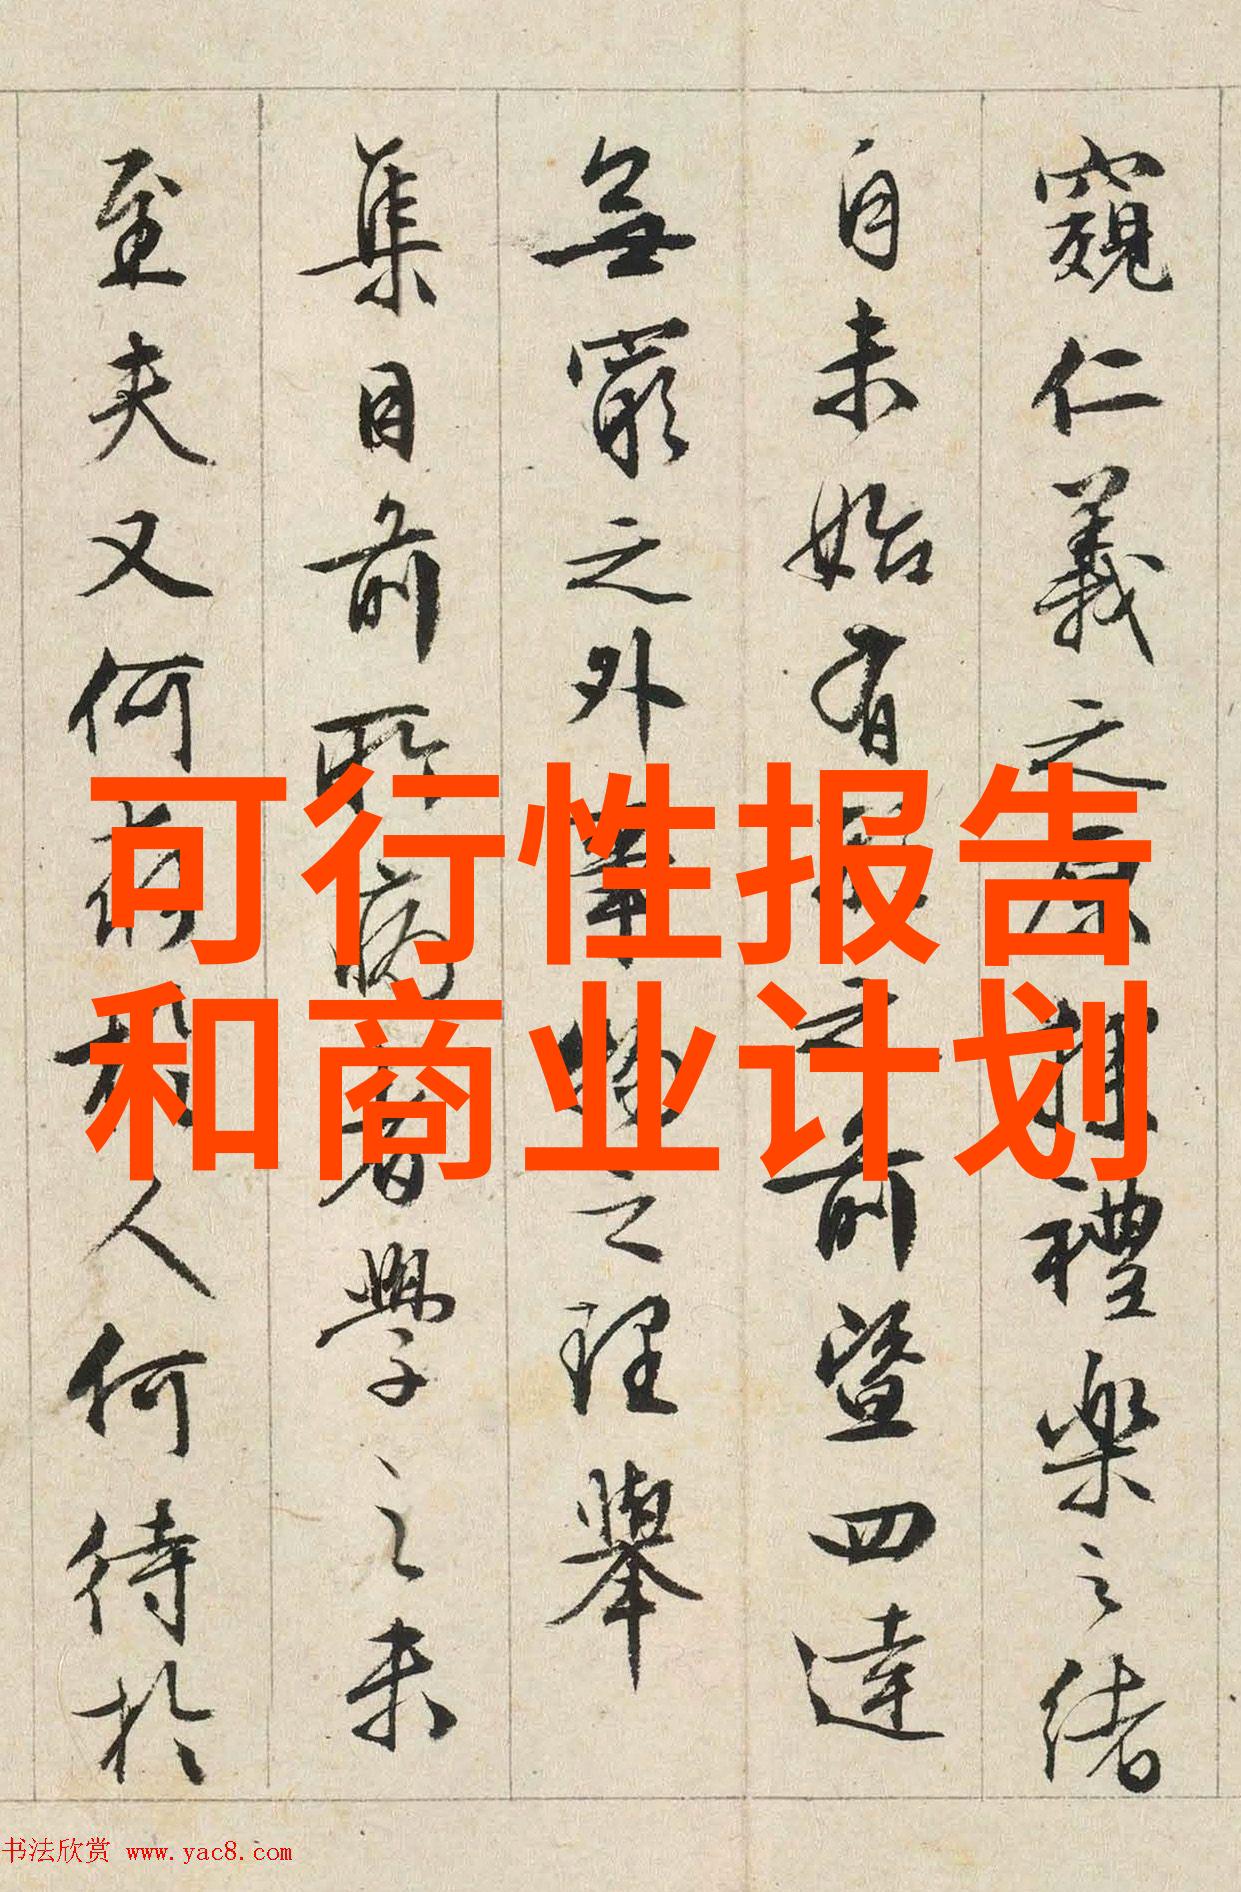 窺仁義之原探禮樂之緒
自未始有之前暨四達
無窮之外事物之理舉
集目前所病者學之未
至夫又何人何待於
可行性报告
和商业计划
书法欣赏 www.yac8.com